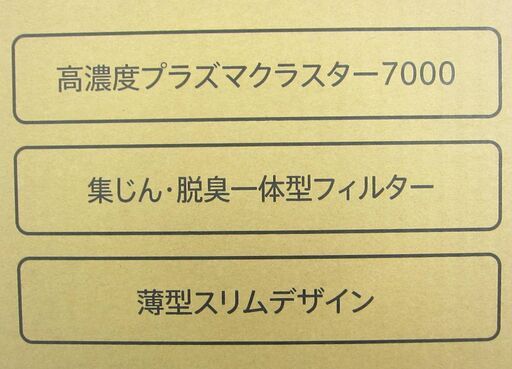 高濃度プラズマクラスター7000
集じん・脱臭一体型フィルター
薄型スリムデザイン